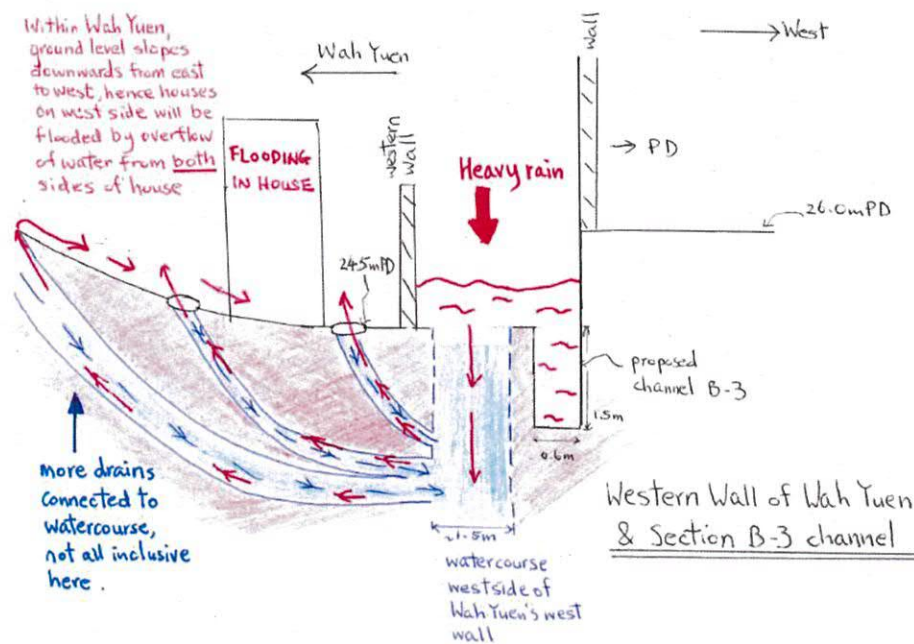 Within Wah Yuen,
ground level slopes
downwards from east
to west, hence houses
on west side will be
flooded by overflow
of water from both
sides of house
Wah Yuen
West
wall
western
wall
PD
FLOODING
IN HOUSE
Heavy rain
26.0mPD
24.5mPD
proposed
channel B-3
1.5m
0.6m
more drains
connected to
watercourse,
not all inclusive
here.
1.5m
watercourse
westside of
Wah Yuen's west
wall
Western Wall of Wah Yuen
& Section B-3 channel